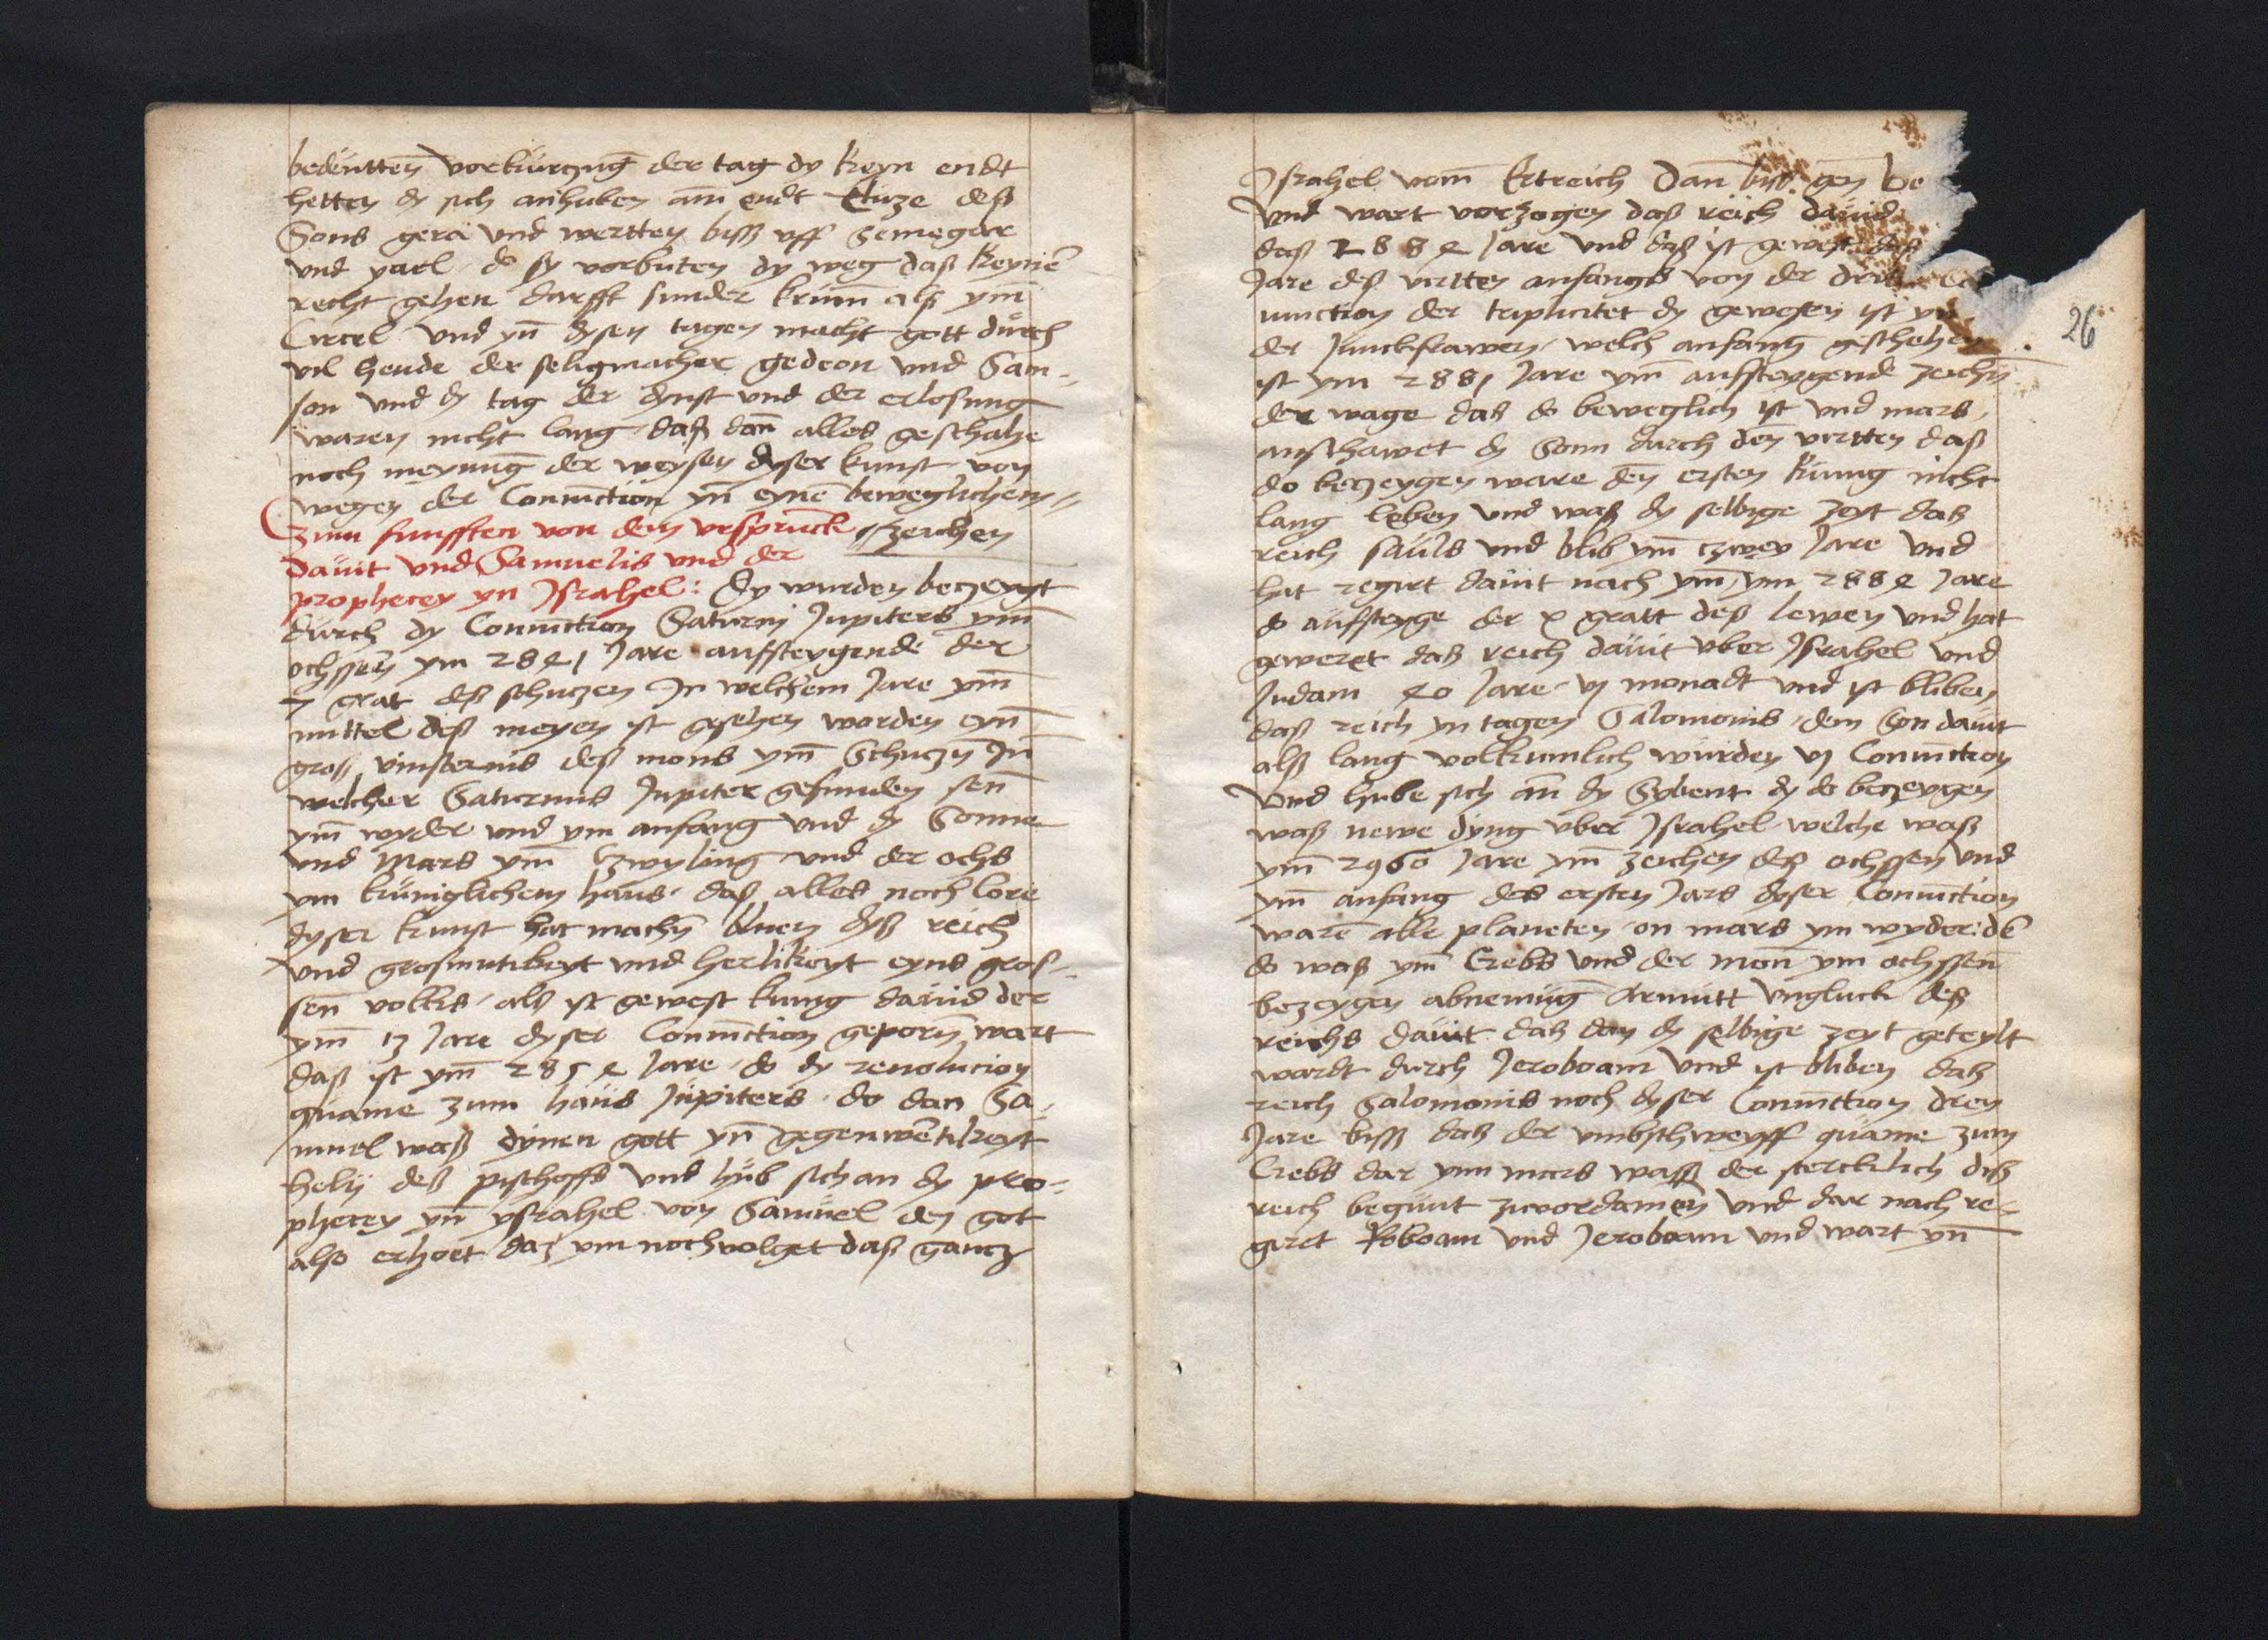 bedeutten̄ vorkurczunḡ der tag dy keyn endt
hetten dy sich anhuben am̄ endt Eluze deß
Sons gera vnd wertten biß vff Semegar
vnd yael do sy vorbuten dy weg daß keynē
recht gehen durfft sunder krum̄ alß ym̄
Circel vnd yn̄ dysen tagen macht gott durch
vil hende der seligmacher gedeon vnd Sam-
son vnd dy tag der dynst vnd der erlosung
waren nicht lang daß dan̄ alles geschahe
noch meynunḡ der weysen dyser kunst von
wegen der Coniūction yn̄ eynē beweglichem
zum funfften von dem vrsprunck zeichen
Dauit vnd Samuelis vnd der
prophecey yn Israhel: Dy wurden beczeygt
durch dy Coniūction Saturni Jupiters ym̄
ochssen̄ ym 2841 Jare aufsteygende der
7 grat deß schuczen Jn welchem Jare ym̄
mittel diß meyen ist gesehen worden eyn̄
groß vinsternis deß mons ym̄ Schuczn̄ Jn̄
welcher Saturnus Jupiter gefunden sen̄
ym̄ wyder vnd ym anfang vnd dy Sonne
vnd Mars ym̄ Czwyling vnd der ochs
ym kuniglichem haus daß alles noch lore
dyser kunst hat machn̄ bluen dyß reich
vnd grosmutikeyt vnd herlikeyt eyns gros-
sen̄ volkis alß ist gewest kung dauid der
ym̄ 13 Jare dyser Coniūction geporn̄ wart
daß ist ym̄ 2854 Jare do dy reuolucion
quame zum haus Jupiters do dan Sa-
muel waß dynen gott yn̄ gegenwētikeyt
helij deß pischoffs vnd hub sich an dy pro-
phecey yn̄ ysrahel von Samuel den got
also erhoet daz ym nochvolget daß gancz
Israhel vom̄ Ertreich Dan̄ biß gen be
Vnd wart vorzogen daß reich dauid
daß 2884 Jare vnd daß ist gewest daß
Jare deß virtten anfangs von der drit
iunction der triplicitet dy gewesen ist yn
der Junckfrawen welch anfanḡ geschehen
ist ym 2881 Jare ym̄ aufsteygende zeichn̄
der wage daß do beweglich ist vnd mars
anschawet dy Sonn durch den̄ virtten daß
do beczeygen ware den̄ ersten kunig nicht
lang leben vnd waß dy selbige zeyt daß
reich sauls vnd blib ym̄ czwey Jare vnd
hat regirt dauit nach ym̄ ym 2884 Jare
do aufsteyge der x gratt deß lewen vnd hat
geweret daß reich dauit vber Israhel vnd
Judam 40 Jare vj monadt vnd ist bliben
daß reich yn tagen Salomonis dem Son dauit
alß lang volkumlich wurden vj Coniūction
Vnd hube sich an̄ dy Sybent dy do beczeygen
waß newe dyng vber Israhel welche waß
ym̄ 2960 Jare ym̄ zeichen deß ochssen vnd
ym̄ anfang des ersten Jars dyser Coniūction
warē alle planeten on mars ym wyder: dē
do waß ym̄ Crebs vnd der mon̄ ym ochssen̄
bezeygen abnemūg Armutt vngluck deß
reichs dauit daß dan dy selbige zeyt geteylt
wardt durch Jeroboam vnd ist bliben daß
reich Salomonis noch dyser Coniūction drey
Jare biß daß der vmbschweyff quame zum
Crebs dar ynn mars waß der stercklich diß
reich begunt zuvordamen̄ vnd dar nach re-
giret Roboam vnd Jeroboam vnd wart yn̄
26